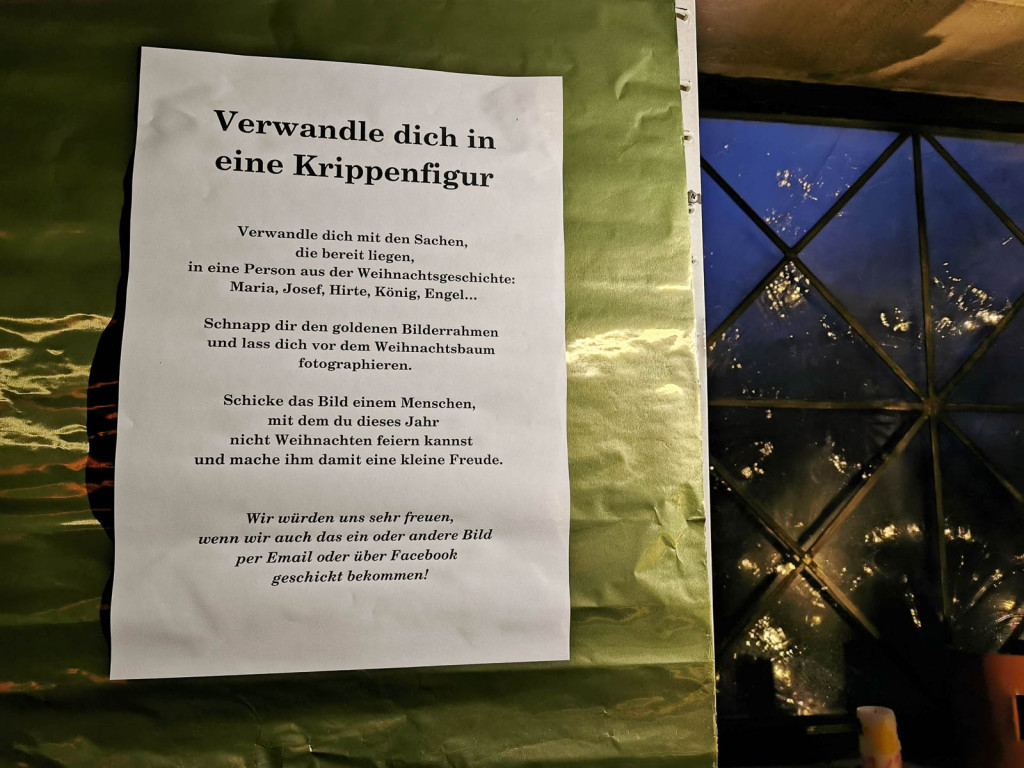 Verwandle dich in
eine Krippenfigur
Verwandle dich mit den Sachen,
die bereit liegen,
in eine Person aus der Weihnachtsgeschichte:
Maria, Josef, Hirte, König, Engel...
Schnapp dir den goldenen Bilderrahmen
und lass dich vor dem Weihnachtsbaum
fotographieren.
Schicke das Bild einem Menschen,
mit dem du dieses Jahr
nicht Weihnachten feiern kannst
und mache ihm damit eine kleine Freude.
Wir würden uns sehr freuen,
wenn wir auch das ein oder andere Bild
per Email oder über Facebook
geschickt bekommen!